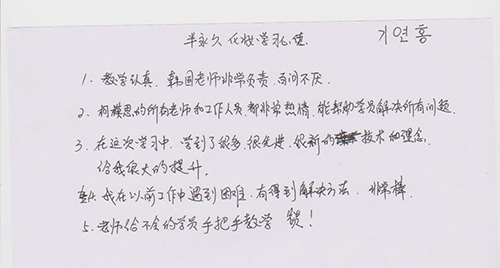 半永久化妆学习心得
기연홍
1. 教学认真，韩国老师非常负责，百问不厌.
2. 柯模思的所有老师和工作人员，都非常热情，能帮助学员解决所有问题.
3. 在这次学习中，学到了很多，很先进，很新的技术和理念，
给我很大的提升.
我在以前工作中遇到困难，有得到解决方法，非常棒.
5. 老师给不会的学员手把手教学 赞！